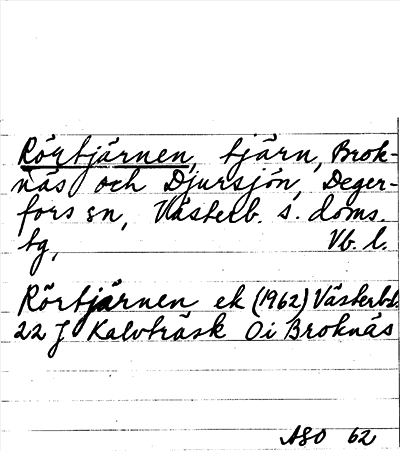 Rörtjärnen, tjärn, Brok-
näs och Djursjön, Deger-
fors sn, Västerb. s. doms.
tg, Vb. l.
Rörtjärnen ek (1962) Västerb.l.
22 J Kalvträsk O i Broknäs
ASO 62